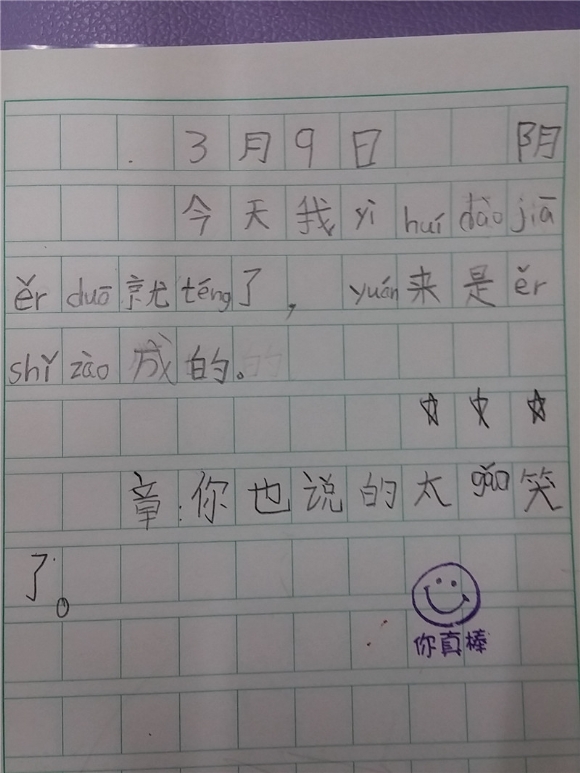 3月9日 阴
今天我yì huí dào jiā
ěr duō就téng了，yuán来是ěr
shǐ zào成的。的
章:你也说的太gǎo笑
了。
你真棒